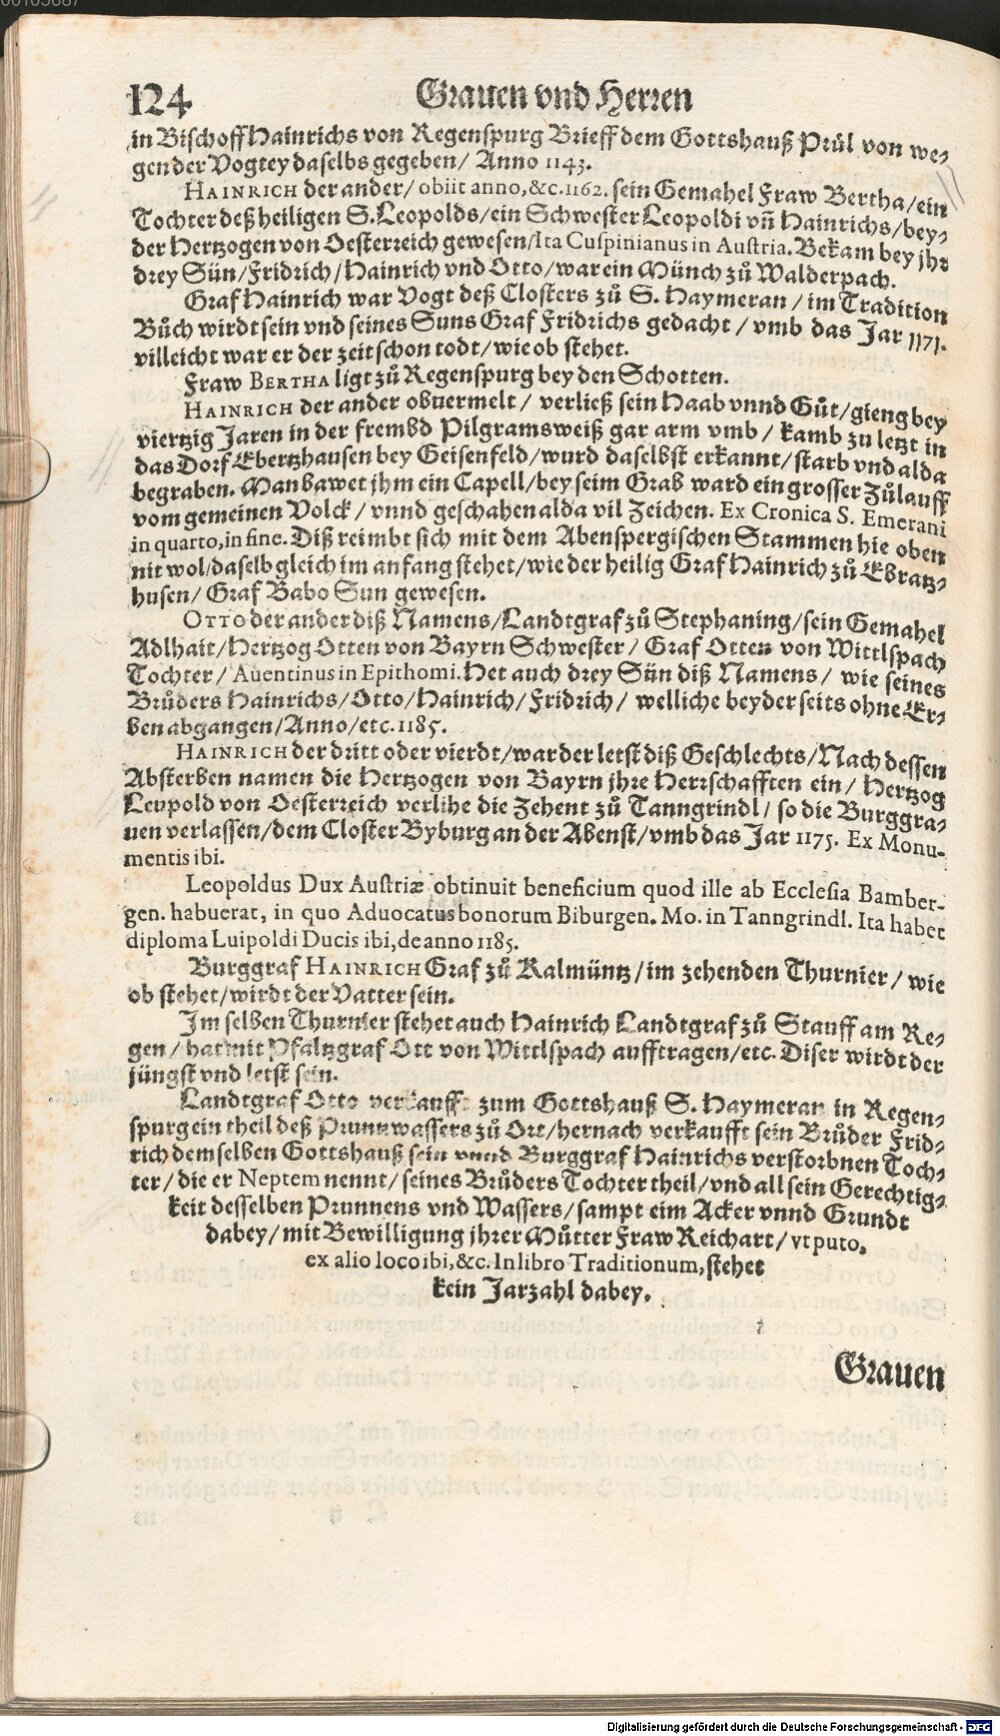 124 Grauen vnd Herren
in Bischoff Hainrichs von Regenspurg Brieff dem Gottshauß Prül von we-
gen der Vogtey daselbs gegeben/ Anno 1143.
HAINRICH der ander/ obiit anno, &c. 1162. sein Gemahel Fraw Bertha/ ein
Tochter deß heiligen S. Leopolds/ ein Schwester Leopoldi vñ Hainrichs/ bey-
der Hertzogen von Oesterreich gewesen/ Ita Cuspinianus in Austria. Bekam bey jhr
drey Sün/ Fridrich/ Hainrich vnd Otto/ war ein Münch zů Walderpach.
Graf Hainrich war Vogt deß Closters zů S. Haymeran/ im Tradition
Bůch wirdt sein vnd seines Suns Graf Fridrichs gedacht/ vmb das Jar 1171.
villeicht war er der zeit schon todt/ wie ob stehet.
Fraw BERTHA ligt zů Regenspurg bey den Schotten.
HAINRICH der ander obuermelt/ verließ sein Haab vnnd Gůt/ gieng bey
viertzig Jaren in der frembd Pilgramsweiß gar arm vmb/ kamb zu letzt in
das Dorf Ebertzhausen bey Geisenfeld/ wurd daselbst erkannt/ starb vnd alda
begraben. Man bawet jhm ein Capell/ bey seim Grab ward ein grosser Zůlauff
vom gemeinen Volck/ vnnd geschahen alda vil Zeichen. Ex Cronica S. Emerani
in quarto, in fine. Diß reimbt sich mit dem Abenspergischen Stammen hie oben
nit wol/ daselb gleich im anfang stehet/ wie der heilig Graf Hainrich zů Ebratz-
husen/ Graf Babo Sun gewesen.
OTTO der ander diß Namens/ Landtgraf zů Stephaning/ sein Gemahel
Adlhait/ Hertzog Otten von Bayrn Schwester/ Graf Otten von Wittlspach
Tochter/ Auentinus in Epithomi. Het auch drey Sün diß Namens/ wie seines
Brůders Hainrichs/ Otto/ Hainrich/ Fridrich/ welliche beyderseits ohne Er-
ben abgangen/ Anno/ etc. 1185.
HAINRICH der dritt oder vierdt/ war der letst diß Geschlechts/ Nach dessen
Absterben namen die Hertzogen von Bayrn jhre Herrschafften ein/ Hertzog
Leupold von Oesterreich verlihe die Zehent zů Tanngrindl/ so die Burggra-
uen verlassen/ dem Closter Byburg an der Abenst/ vmb das Jar 1175. Ex Monu-
mentis ibi.
Leopoldus Dux Austriæ obtinuit beneficium quod ille ab Ecclesia Bamber-
gen. habuerat, in quo Aduocatus bonorum Biburgen. Mo. in Tanngrindl. Ita habet
diploma Luipoldi Ducis ibi, de anno 1185.
Burggraf HAINRICH Graf zů Kalmüntz/ im zehenden Thurnier/ wie
ob stehet/ wirdt der Vatter sein.
Im selben Thurnier stehet auch Hainrich Landtgraf zů Stauff am Re-
gen/ hat mit Pfaltzgraf Ott von Wittlspach aufftragen/ etc. Diser wirdt der
jüngst vnd letst sein.
Landtgraf Otto verkaufft zum Gottshauß S. Haymeran in Regen-
spurg ein theil deß Prunnwassers zů Ort/ hernach verkaufft sein Brůder Frid-
rich demselben Gottshauß sein vnnd Burggraf Hainrichs verstorbnen Toch-
ter/ die er Neptem nennt/ seines Brůders Tochter theil/ vnd all sein Gerechtig-
keit desselben Prunnens vnd Wassers/ sampt eim Acker vnnd Grundt
dabey/ mit Bewilligung jhrer Můtter Fraw Reichart/ vt puto,
ex alio loco ibi, &c. In libro Traditionum, stehet
kein Jarzahl dabey.
Grauen
Digitalisierung gefördert durch die Deutsche Forschungsgemeinschaft - DFG